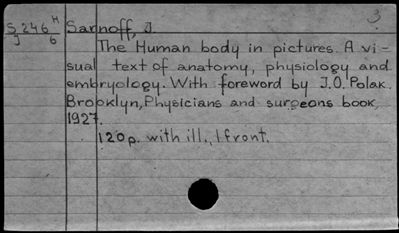 3
S 246 H Sarnoff, J.
J 6
The Human body in pictures. A vi-
sual text of anatomy, physiology and
embryology. With foreword by J.O. Polak.
Brooklyn, Physicians and surgeons book,
1927.
120p. with ill., 1 front.